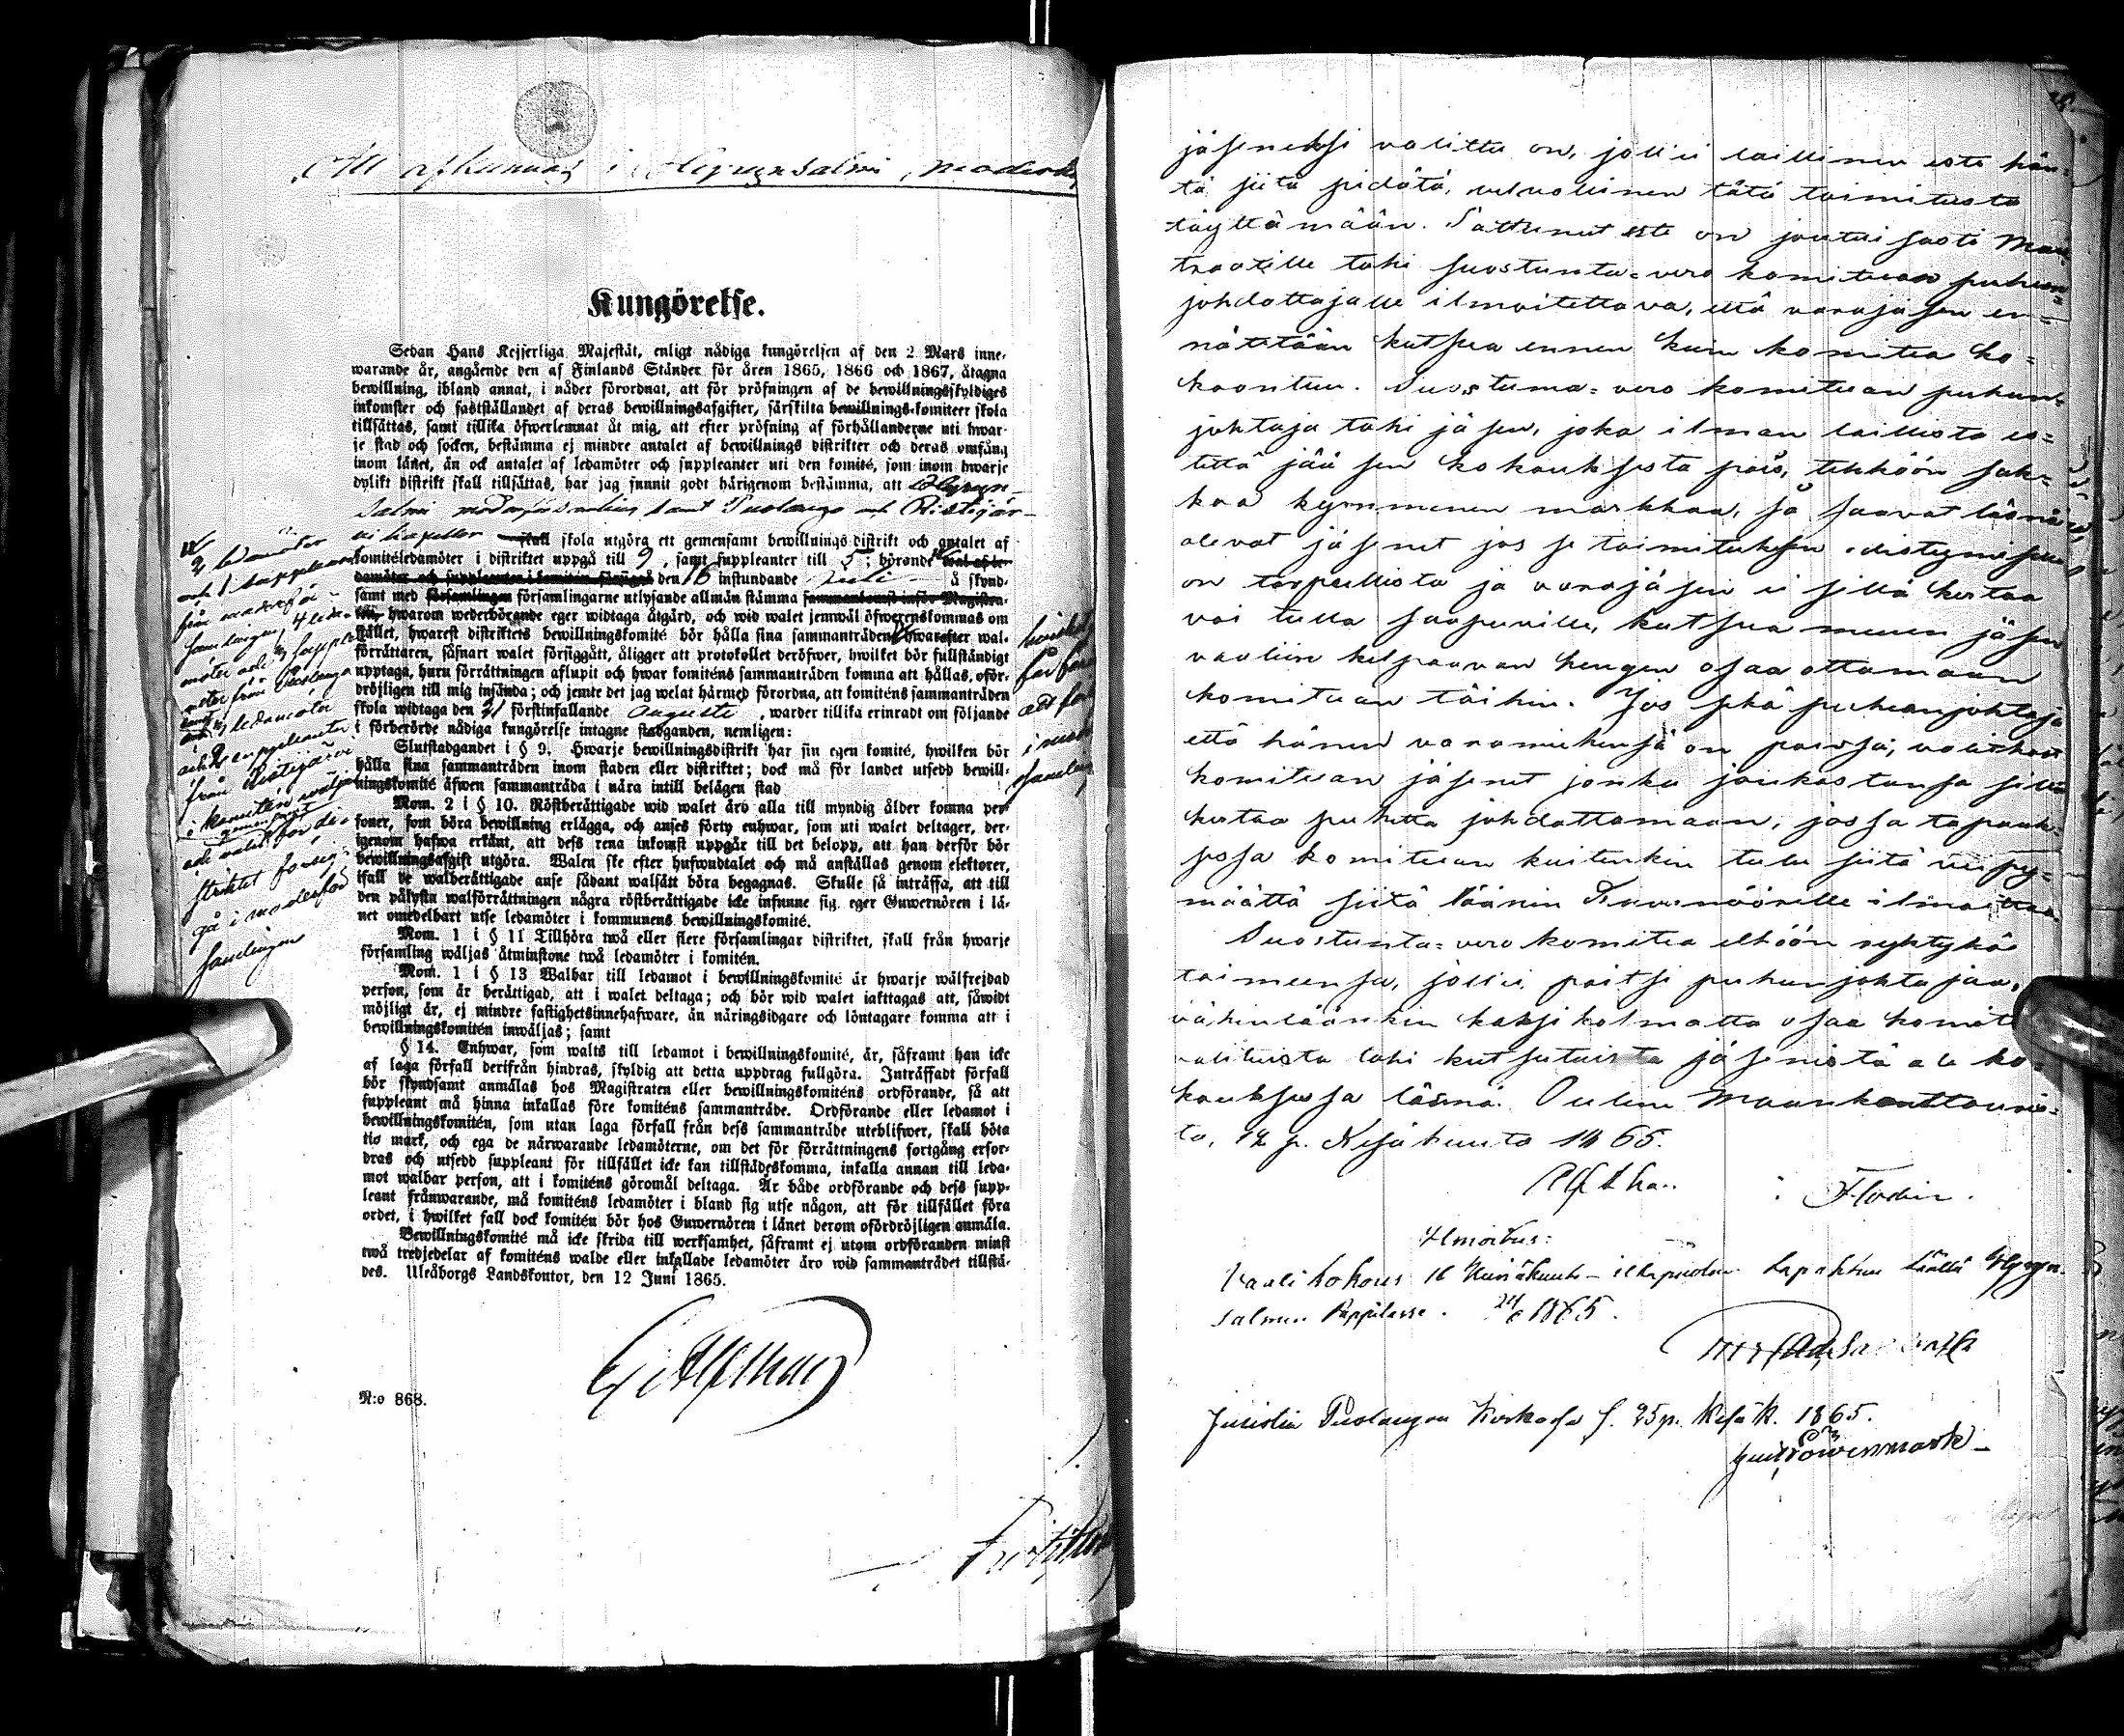 Att afkunnas i Hyrynsalmi, moderk
Kungörelse.
Sedan Hans Kejserliga Majestät, enligt nådiga kungörelsen af den 2 Mars inne-
warande år, angående den af Finlands Ständer för åren 1865, 1866 och 1867, åtagna
bewillning, ibland annat, i nåder förordnat, att för pröfningen af de bewillningsskyldiges
inkomster och fastställandet af deras bewillningsafgifter, särskilta bewillnings-komiteer skola
tillsättas, samt tillika öfwerlemnat åt mig, att efter pröfning af förhållanderne uti hwar-
je stad och socken, bestämma ej mindre antalet af bewillnings distrikter och deras omfång
inom länet, än ock antalet af ledamöter och suppleanter uti den komité, som inom hwarje
dylikt distrikt skall tillsättas, har jag funnit godt härigenom bestämma, att Hyryn-
salmi moderförsamling samt Puolango och Ristijär-
vi kapeller skall skola utgöra ett gemensamt bewillnings distrikt och antalet af
komitéledamöter i distriktet uppgå till 9, samt suppleanter till 5; börande wal af le-
damöter och suppleanter i komitén den 16 instundande Juli å skynd-
samt med församlingen församlingarne utlysande allmän stämma sammankomst inför Magistra-
ten, hwarom wederbörande eger widtaga åtgärd, och wid walet jemwäl öfwerenskommas om
stället, hwarest distriktets bewillningskomité bör hålla sina sammanträden hwarefter wal-
förrättaren, såsnart walet försiggått, åligger att protokollet deröfwer, hwilket bör fullständigt
upptaga, huru förrättningen aflupit och hwar komiténs sammanträden komma att hållas, oför-
dröjligen till mig insända; och jemte det jag welat härmed förordna, att komiténs sammanträden
skola widtaga den 21 förstinfallande Augusti, warder tillika erinradt om följande
i förberörde nådiga kungörelse intagne stadganden, nemligen:
Slutstadgandet i § 9. Hwarje bewillningsdistrikt har sin egen komité, hwilken bör
hålla sina sammanträden inom staden eller distriktet; dock må för landet utsedd bewill-
ningskomité äfwen sammanträda i nära intill belägen stad
Mom. 2 i § 10. Röstberättigade wid walet äro alla till myndig ålder komna per-
soner, som böra bewillning erlägga, och anses förty enhwar, som uti walet deltager, der-
igenom hafwa erkänt, att dess rena inkomst uppgår till det belopp, att han derför bör
bewillningsafgift utgöra. Walen ske efter hufwudtalet och må anställas genom elektorer,
ifall de walberättigade anse sådant walsätt böra begagnas. Skulle så inträffa, att till
den pålysta walförrättningen några röstberättigade icke infunne sig, eger Guwernören i lä-
net omedelbart utse ledamöter i kommunens bewillningskomité.
Mom. 1 i § 11 Tillhöra twå eller flere församlingar distriktet, skall från hwarje
församling wäljas åtminstone twå ledamöter i komitén.
Mom. 1 i § 13 Walbar till ledamot i bewillningskomité är hwarje wälfrejdad
person, som är berättigad, att i walet deltaga; och bör wid walet iakttagas att, såwidt
möjligt är, ej mindre fastighetsinnehafware, än näringsidgare och löntagare komma att i
bewillningskomitén inwäljas; samt
§ 14. Enhwar, som walts till ledamot i bewillningskomité, är, såframt han icke
af laga förfall derifrån hindras, skyldig att detta uppdrag fullgöra. Inträffadt förfall
bör skyndsamt anmälas hos Magistraten eller bewillningskomiténs ordförande, så att
suppleant må hinna inkallas före komiténs sammanträde. Ordförande eller ledamot i
bewillningskomitén, som utan laga förfall från dess sammanträde uteblifwer, skall böta
tio mark, och ega de närwarande ledamöterne, om det för förrättningens fortgång erfor-
dras och utsedd suppleant för tillfället icke kan tillstädeskomma, inkalla annan till leda-
mot walbar person, att i komiténs göromål deltaga. Är både ordförande och dess supp-
leant frånwarande, må komiténs ledamöter i bland sig utse någon, att för tillfället föra
ordet, i hwilket fall dock komitén bör hos Guwernören i länet derom ofördröjligen anmäla.
Bewillningskomité må icke skrida till werksamhet, såframt ej utom ordföranden minst
twå tredjedelar af komiténs walde eller inkallade ledamöter äro wid sammanträdet tillstä-
des. Uleåborgs Landskontor, den 12 Juni 1865.
N:o 868.
2 ledamöter
och 1 suppleant
från moderför-
samlingen, 4 leda-
möter och 2 supple-
anter från Puolango
3 ledamöter
och 2 suppleanter
från Ristijärvi
i komitén
distriktet försig-
gå i moderför-
samlingen
jäseneksi valittu on, jollei laillinen este hän-
tä siitä pidätä, velvollinen tätä toimitusta
täyttämään. Sattunut este on joutuisasti Mais-
traatille tahi suostunta-vero komitean puheen-
johdattajalle ilmoitettava, että varajäsen en-
nätetään kutsua ennen kuin komitea ko-
koontuu. Suostuma-vero komitean puheen-
johtaja tahi jäsen, joka ilman laillista es-
tettä jää sen kokouksesta pois, tehköön sak-
koa kymmenen markkaa, ja saavat läsnä
olevat jäsenet jos se toimituksen edistymiselle
on tarpeellista ja varajäsen ei sillä kertaa
voi tulla saapuville, kutsua muun jäsen
vaaliin kelpaavan hengen osaa ottamaan
komitean töihin. Jos sekä puheenjohtaja
että hänen varamiehensä on poissa, valitkoot
komitean jäsenet jonku joukostansa sillä
kertaa puhetta johdattamaan, jossa tapauk-
sessa komitean kuitenkin tulee siitä viipy-
mättä siitä läänin Kuvernöörille ilmoittaa.
Suostunta-vero komitea elköön ryhtykö
toimeensa, jollei paitsi puheenjohtajaa,
vähintäänkin kaksi kolmatta osaa komite
valituista tahi kutsutuista jäsenistä ole ko-
kouksessa läsnä. Oulun Maankonttoris-
ta, 12 p. Kesäkuuta 1865.
Alfthan. Flodin.
Ilmoitus:
Vaali kokous 16 Heinäkuuta iltapuolen tapahtuu täällä Hyryn-
salmen Pappilassa. 24/6 1865.
Juistin Puolangon Kirkossa s. 25 p. Kesäk. 1865.
Löwenmark